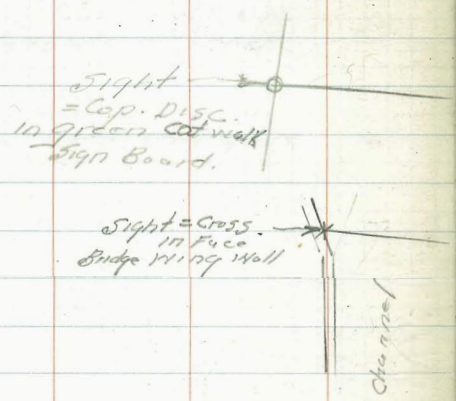 Sight
= Cop. Disc.
in green catwalk
Sign Board.
Sight = Cross
in Face
Bridge Wing Wall
Channel